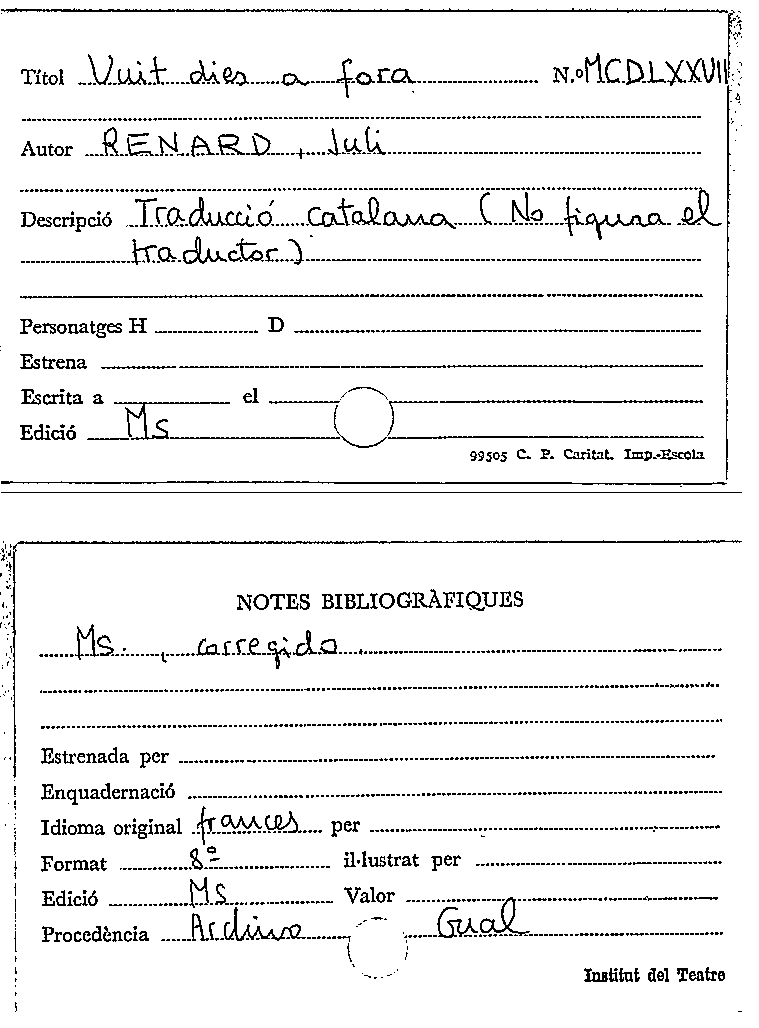 Títol Vuit dies a fora N.º MCDLXXVII
Autor RENARD, Juli
Descripció Traducció catalana (No figura el
traductor)
Personatges H D
Estrena
Escrita a el
Edició Ms
99505 C. P. Caritat. Imp.-Escola
NOTES BIBLIOGRÀFIQUES
Ms., corregido.
Estrenada per
Enquadernació
Idioma original frances per
Format 8º il·lustrat per
Edició Ms Valor
Procedència Archivo Gual
Institut del Teatre